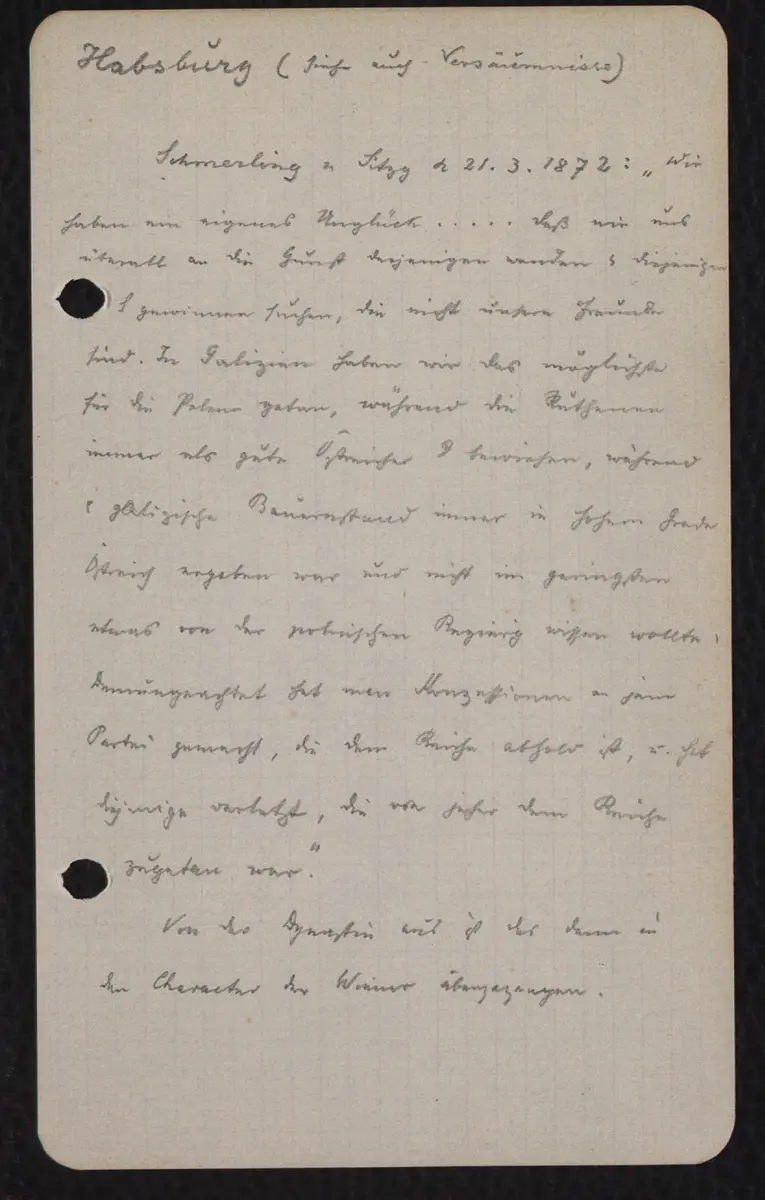 Habsburg (siehe auch Versäumnisse)
Schmerling in Sitzg d 21. 3. 1872: „Wir
haben ein eigenes Unglück ..... daß wir uns
überall an die Gunst derjenigen wenden & diejenigen
z gewinnen suchen, die nicht unsere Freunde
sind. In Galizien haben wir das möglichste
für die Polen getan, während die Ruthenen
immer als gute Östreicher s bewiesen, während
galizische Bauernstand immer in hohem Grade
Östreich ergeben war und nicht im geringsten
etwas von der polnischen Regierg wissen wollte,
Demungeachtet hat man Konzessionen an jene
Partei gemacht, die dem Reiche abhold ist, u. hat
diejenige verletzt, die von jeher dem Reiche
zugetan war."
Von der Dynastie aus ist das dann in
den Character der Wiener übergegangen.